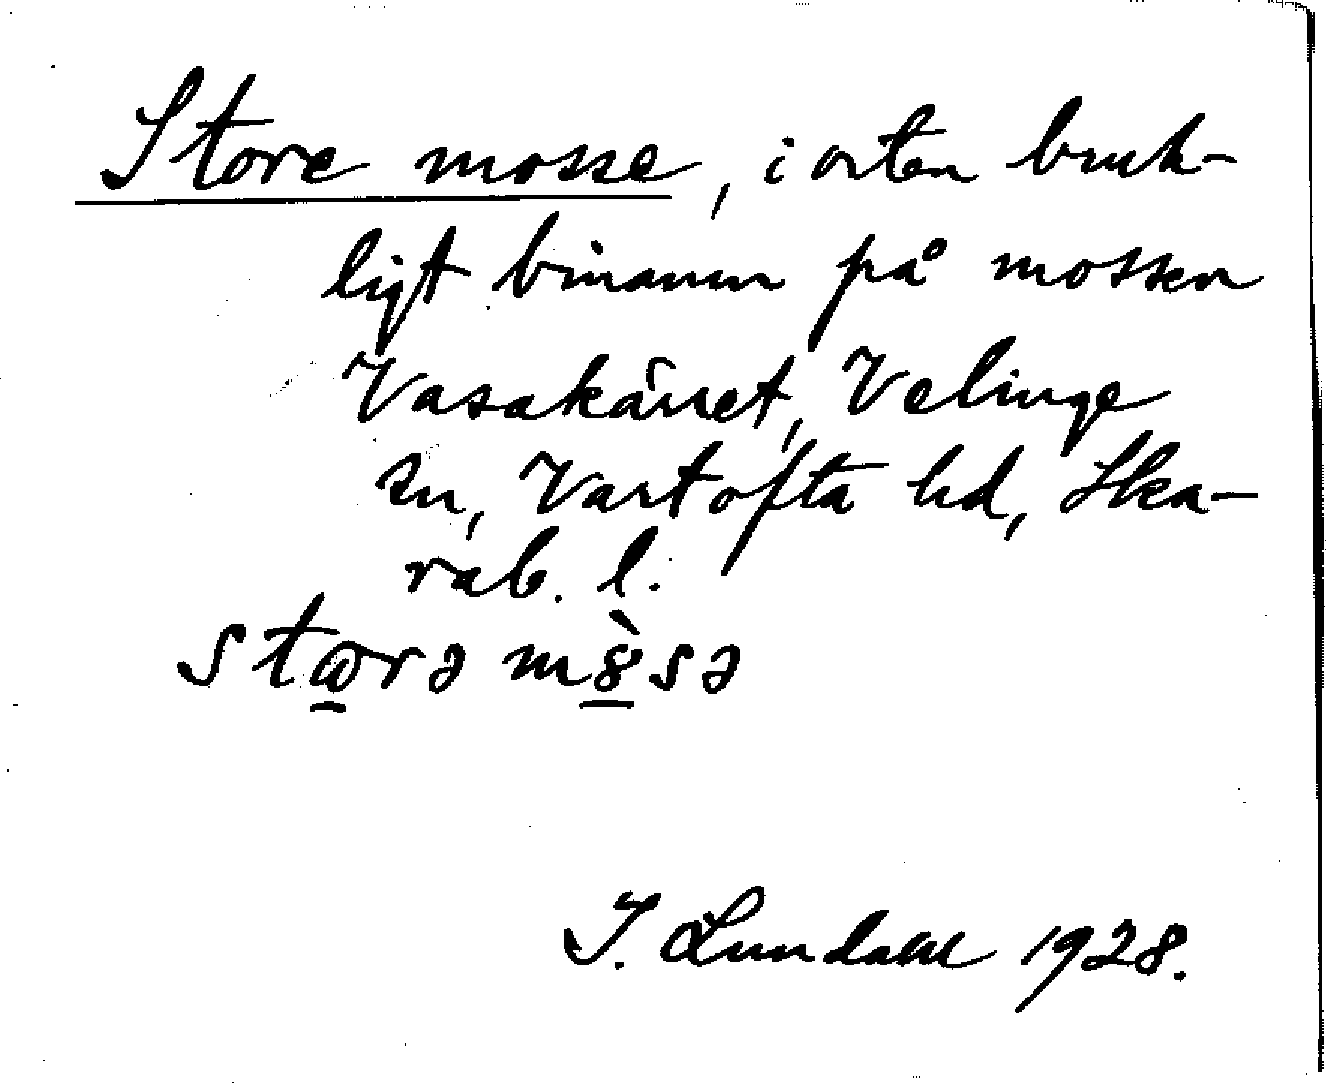 Store mosse, i orten bruk-
ligt binamn på mossen
Vasakärret, Velinge
sn, Vartofta hd, Ska-
rab. l.
stωrə m8̀sə
I. Lundahl 1928.